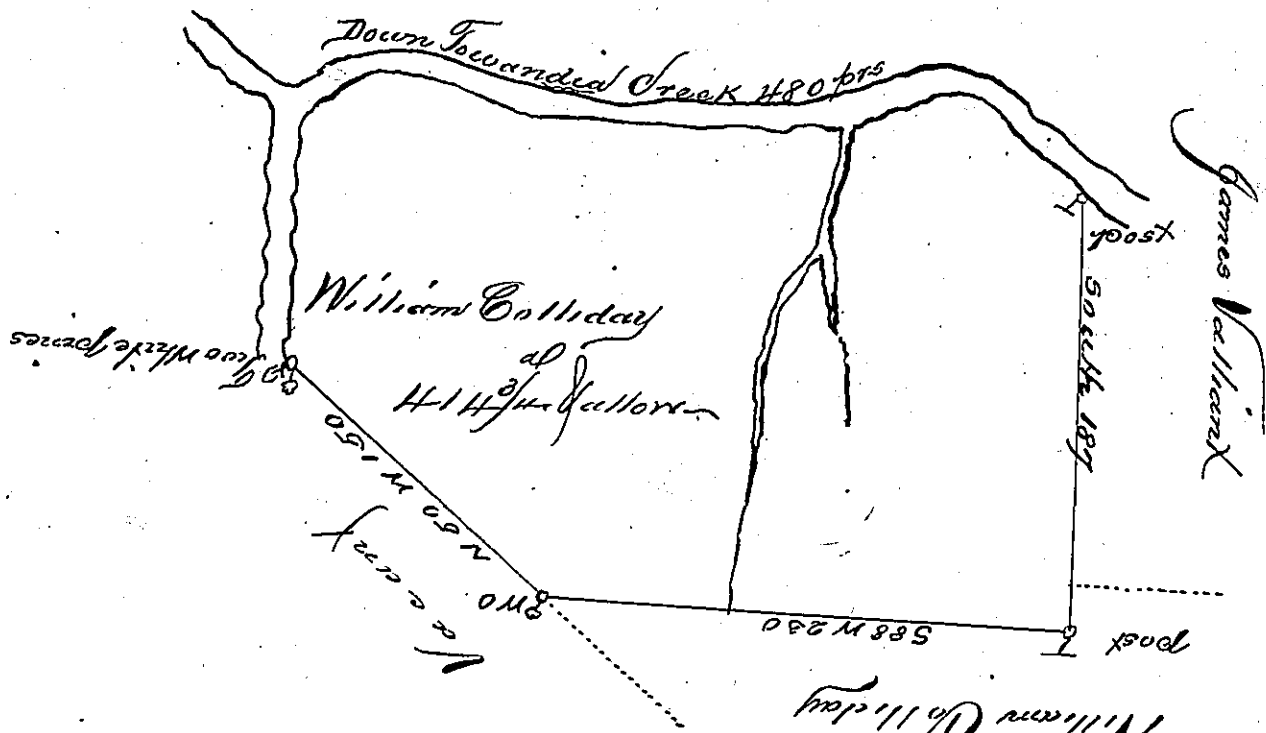 Down Towanda Creek 480 prs
James Valliant
post
South 187
William Colliday
414 3/4 al
Two White pines
N 50 W 150
Vacant
WO
S88W 230
post
William Colliday